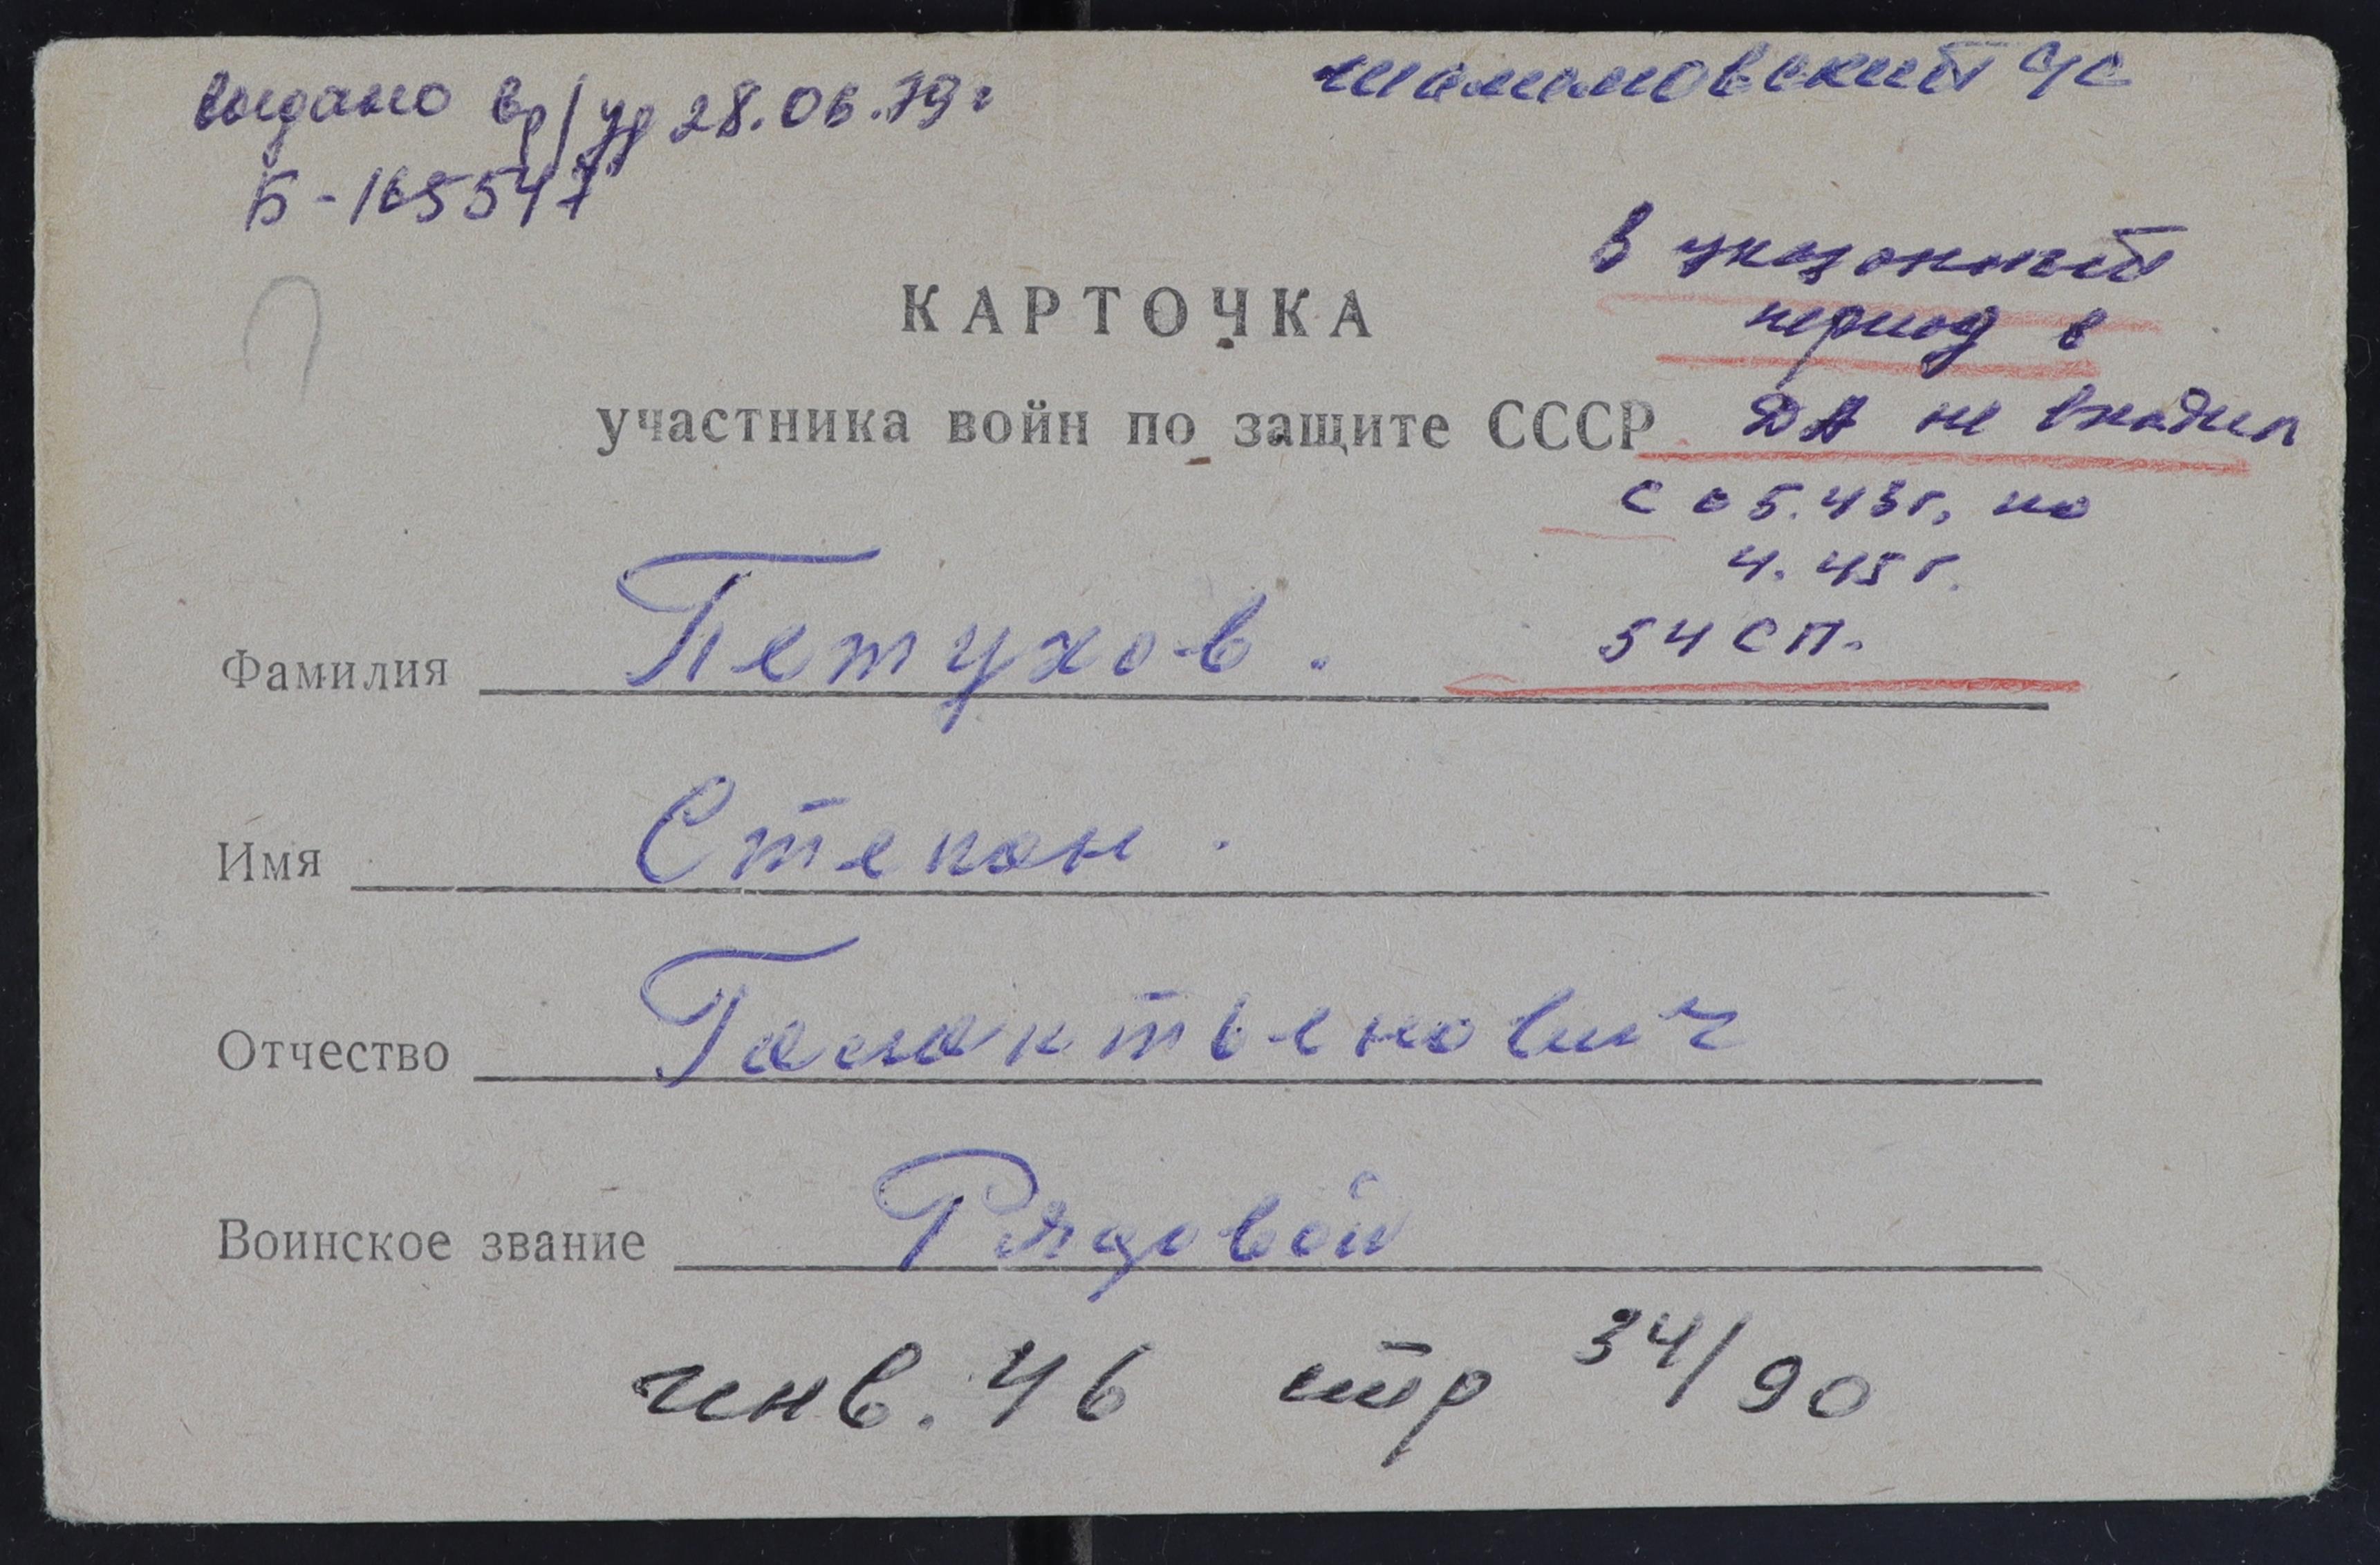 выдано вр/уд 28.06.79г
Б-165547
шамановский с/с
В указанный
период в
ДА не входил
с 05.43г. по
4.45г.
54 СП.
КАРТОЧКА
участника войн по защите СССР
Фамилия Петухов.
Имя Степан.
Отчество Галактьенович
Воинское звание Рядовой
инв. 46 стр 34/90